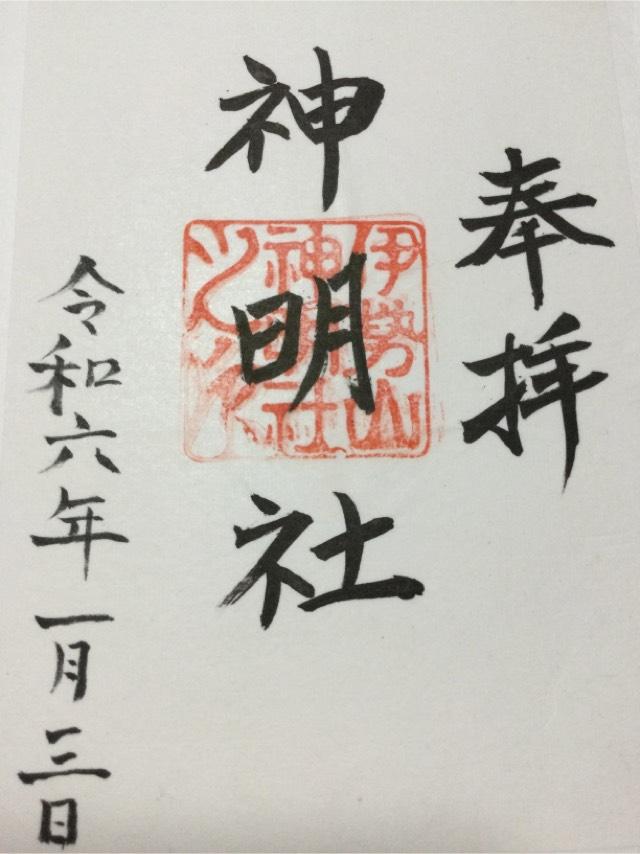 奉拝
神明社
伊勢山
神明社
之印
令和六年一月三日